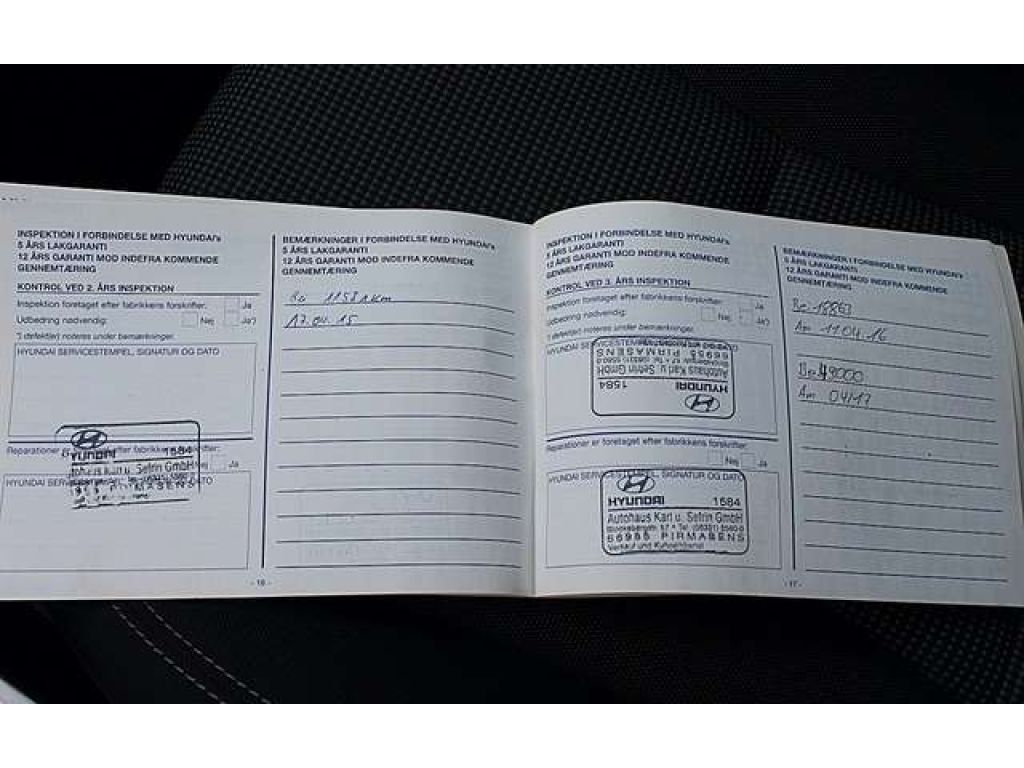 INSPEKTION I FORBINDELSE MED HYUNDAI's
5 ÅRS LAKGARANTI
12 ÅRS GARANTI MOD INDEFRA KOMMENDE
GENNEMTÆRING
KONTROL VED 2. ÅRS INSPEKTION
Inspektion foretaget efter fabrikkens forskrifter.
Udbedring nødvendig: Nej Ja*)
*) defekt(er) noteres under bemærkninger.
HYUNDAI SERVICESTEMPEL, SIGNATUR OG DATO
HYUNDAI 1584
Autohaus Karl u. Sefrin GmbH
PIRMASENS
Reparationer er foretaget efter fabrikkens forskrifter:
Ja
HYUNDAI SERVICESTEMPEL, SIGNATUR OG DATO
BEMÆRKNINGER I FORBINDELSE MED HYUNDAI's
5 ÅRS LAKGARANTI
12 ÅRS GARANTI MOD INDEFRA KOMMENDE
GENNEMTÆRING
17.04.15
- 16 -
INSPEKTION I FORBINDELSE MED HYUNDAI's
5 ÅRS LAKGARANTI
12 ÅRS GARANTI MOD INDEFRA KOMMENDE
GENNEMTÆRING
KONTROL VED 3. ÅRS INSPEKTION
Inspektion foretaget efter fabrikkens forskrifter: Ja
Udbedring nødvendig: Nej Ja*)
*) defekt(er) noteres under bemærkninger.
HYUNDAI SERVICESTEMPEL, SIGNATUR OG DATO
HYUNDAI 1584
Autohaus Karl u. Sefrin GmbH
66955 PIRMASENS
Reparationer er foretaget efter fabrikkens forskrifter:
Nej Ja
HYUNDAI SERVICESTEMPEL, SIGNATUR OG DATO
HYUNDAI 1584
Autohaus Karl u. Sefrin GmbH
66955 PIRMASENS
Verkauf und Kundendienst
BEMÆRKNINGER I FORBINDELSE MED HYUNDAI's
5 ÅRS LAKGARANTI
12 ÅRS GARANTI MOD INDEFRA KOMMENDE
GENNEMTÆRING
Bei 18863
Am 11.04.16
Bei 49000
Am 04/17
- 17 -